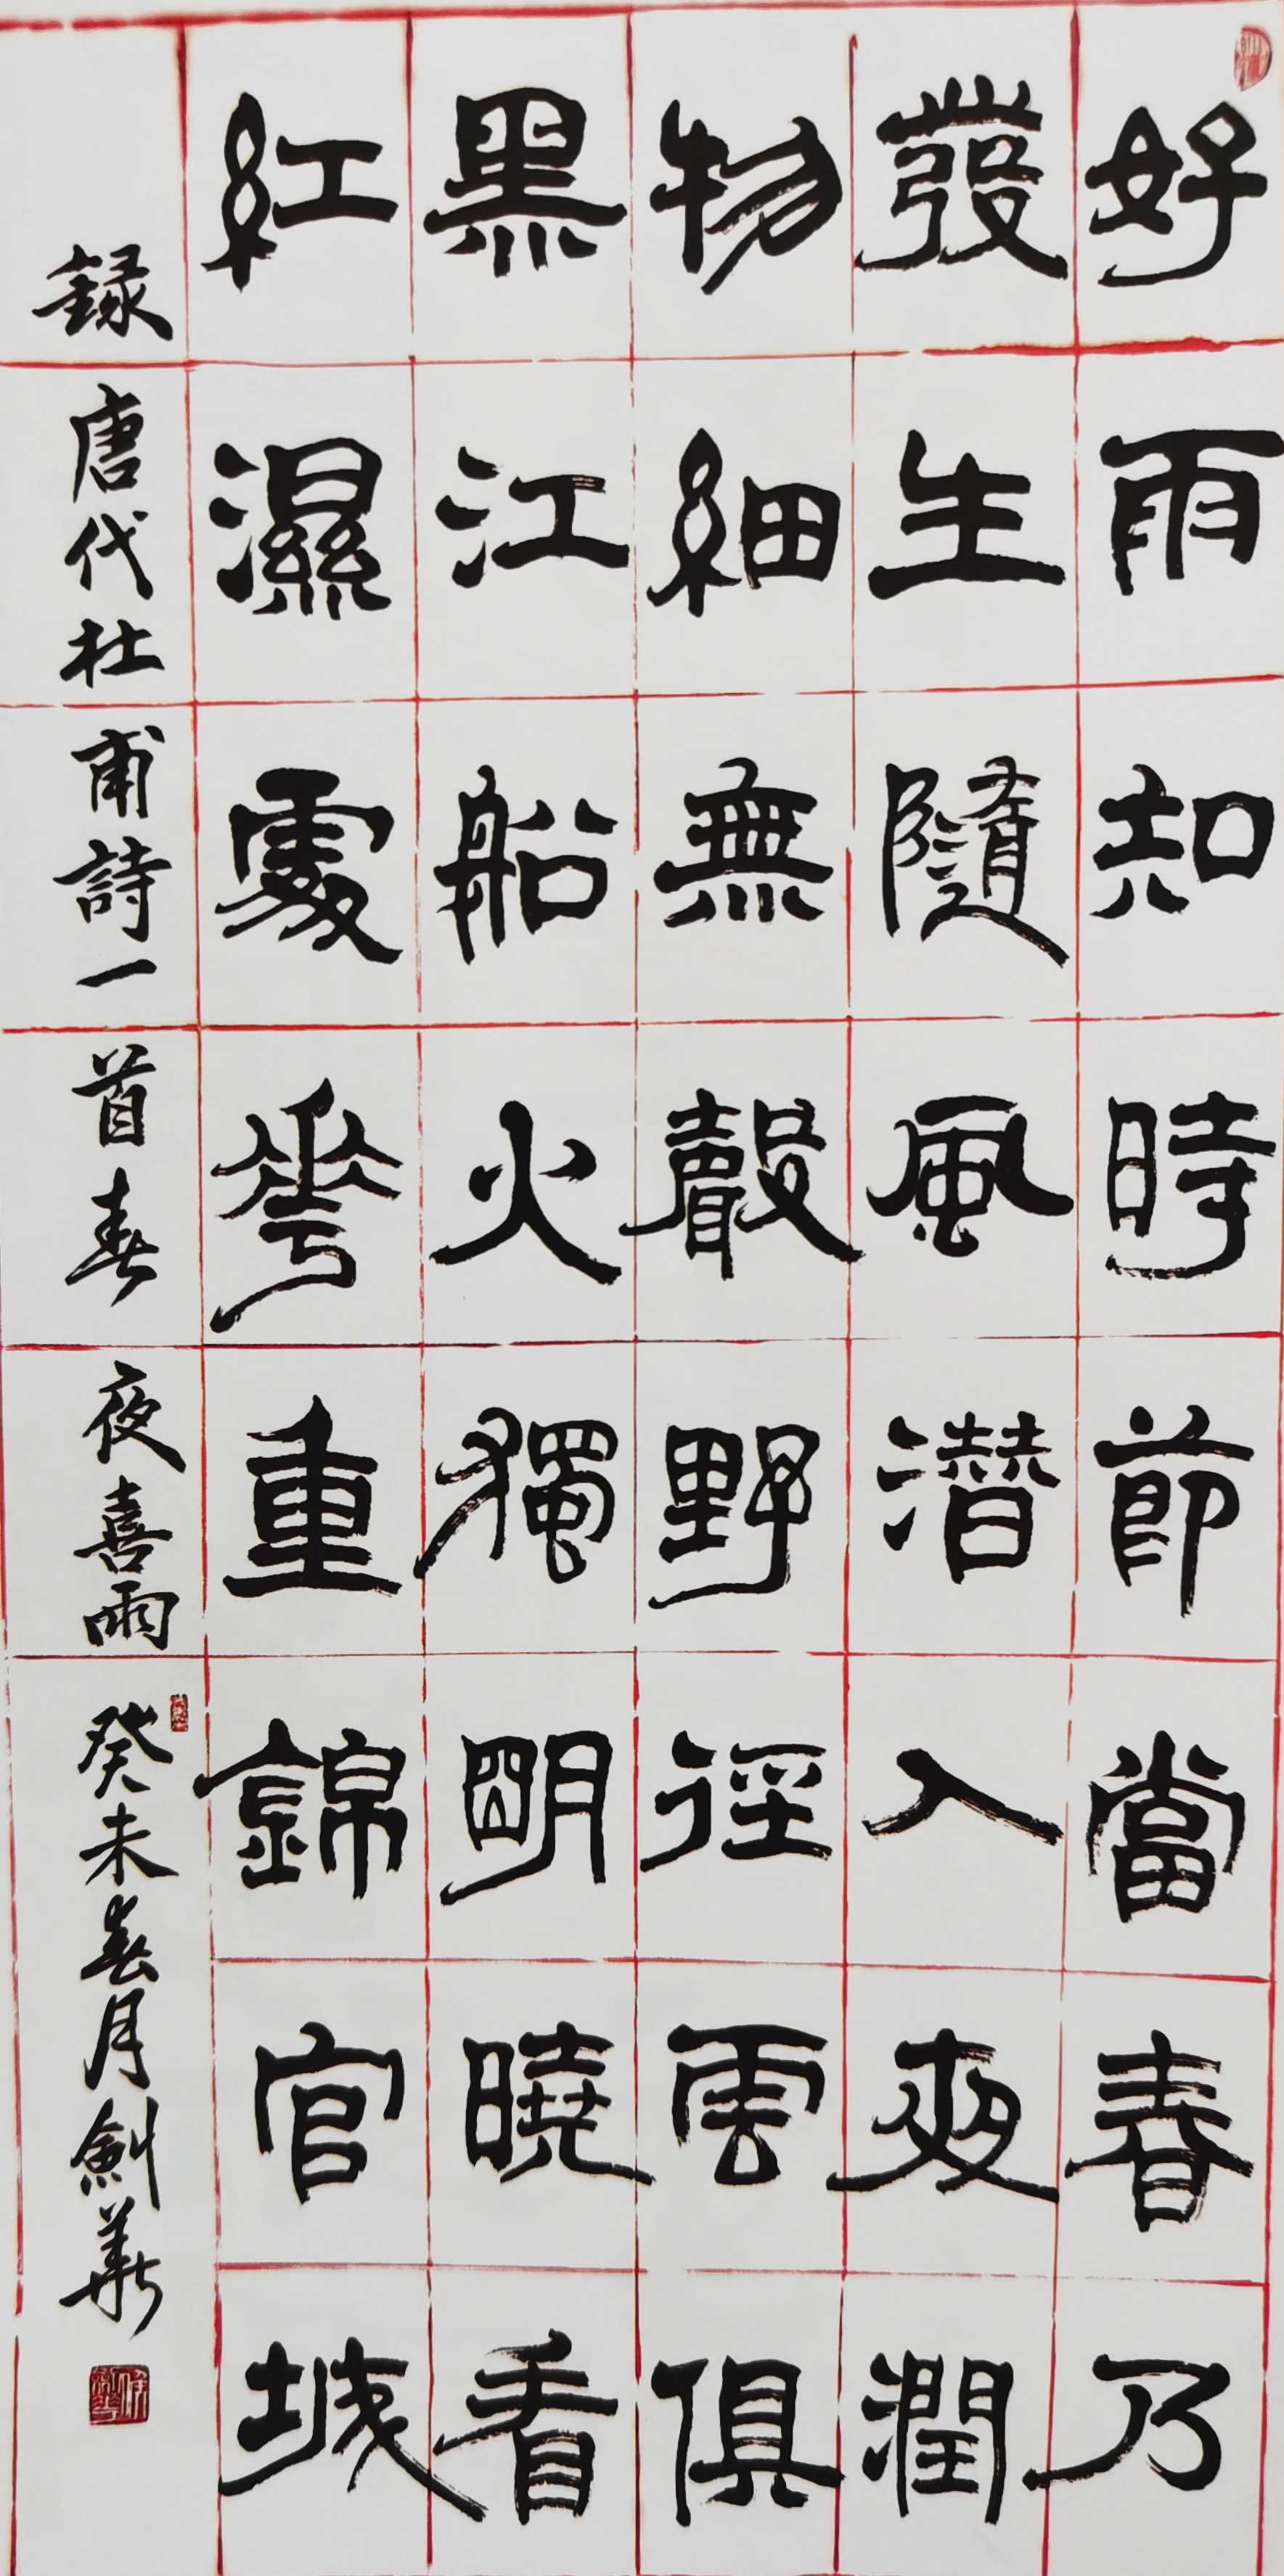 好雨知時節當春乃
發生隨風潜入夜潤
物細無聲野徑雲俱
黑江船火獨明曉看
紅濕處花重錦官城
録唐代杜甫詩一首春夜喜雨癸未春月劍華